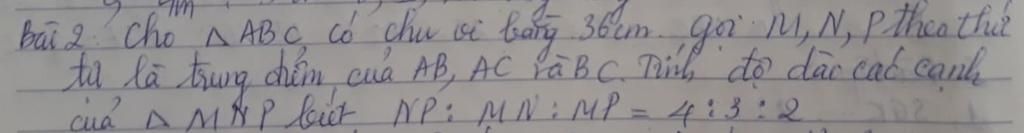 Bài 2: Cho △ ABC có chu vi bằng 36cm. gọi M, N, P theo thứ
tự là trung điểm của AB, AC và BC. Tính độ dài các cạnh
của △ MNP biết NP : MN : MP = 4 : 3 : 2